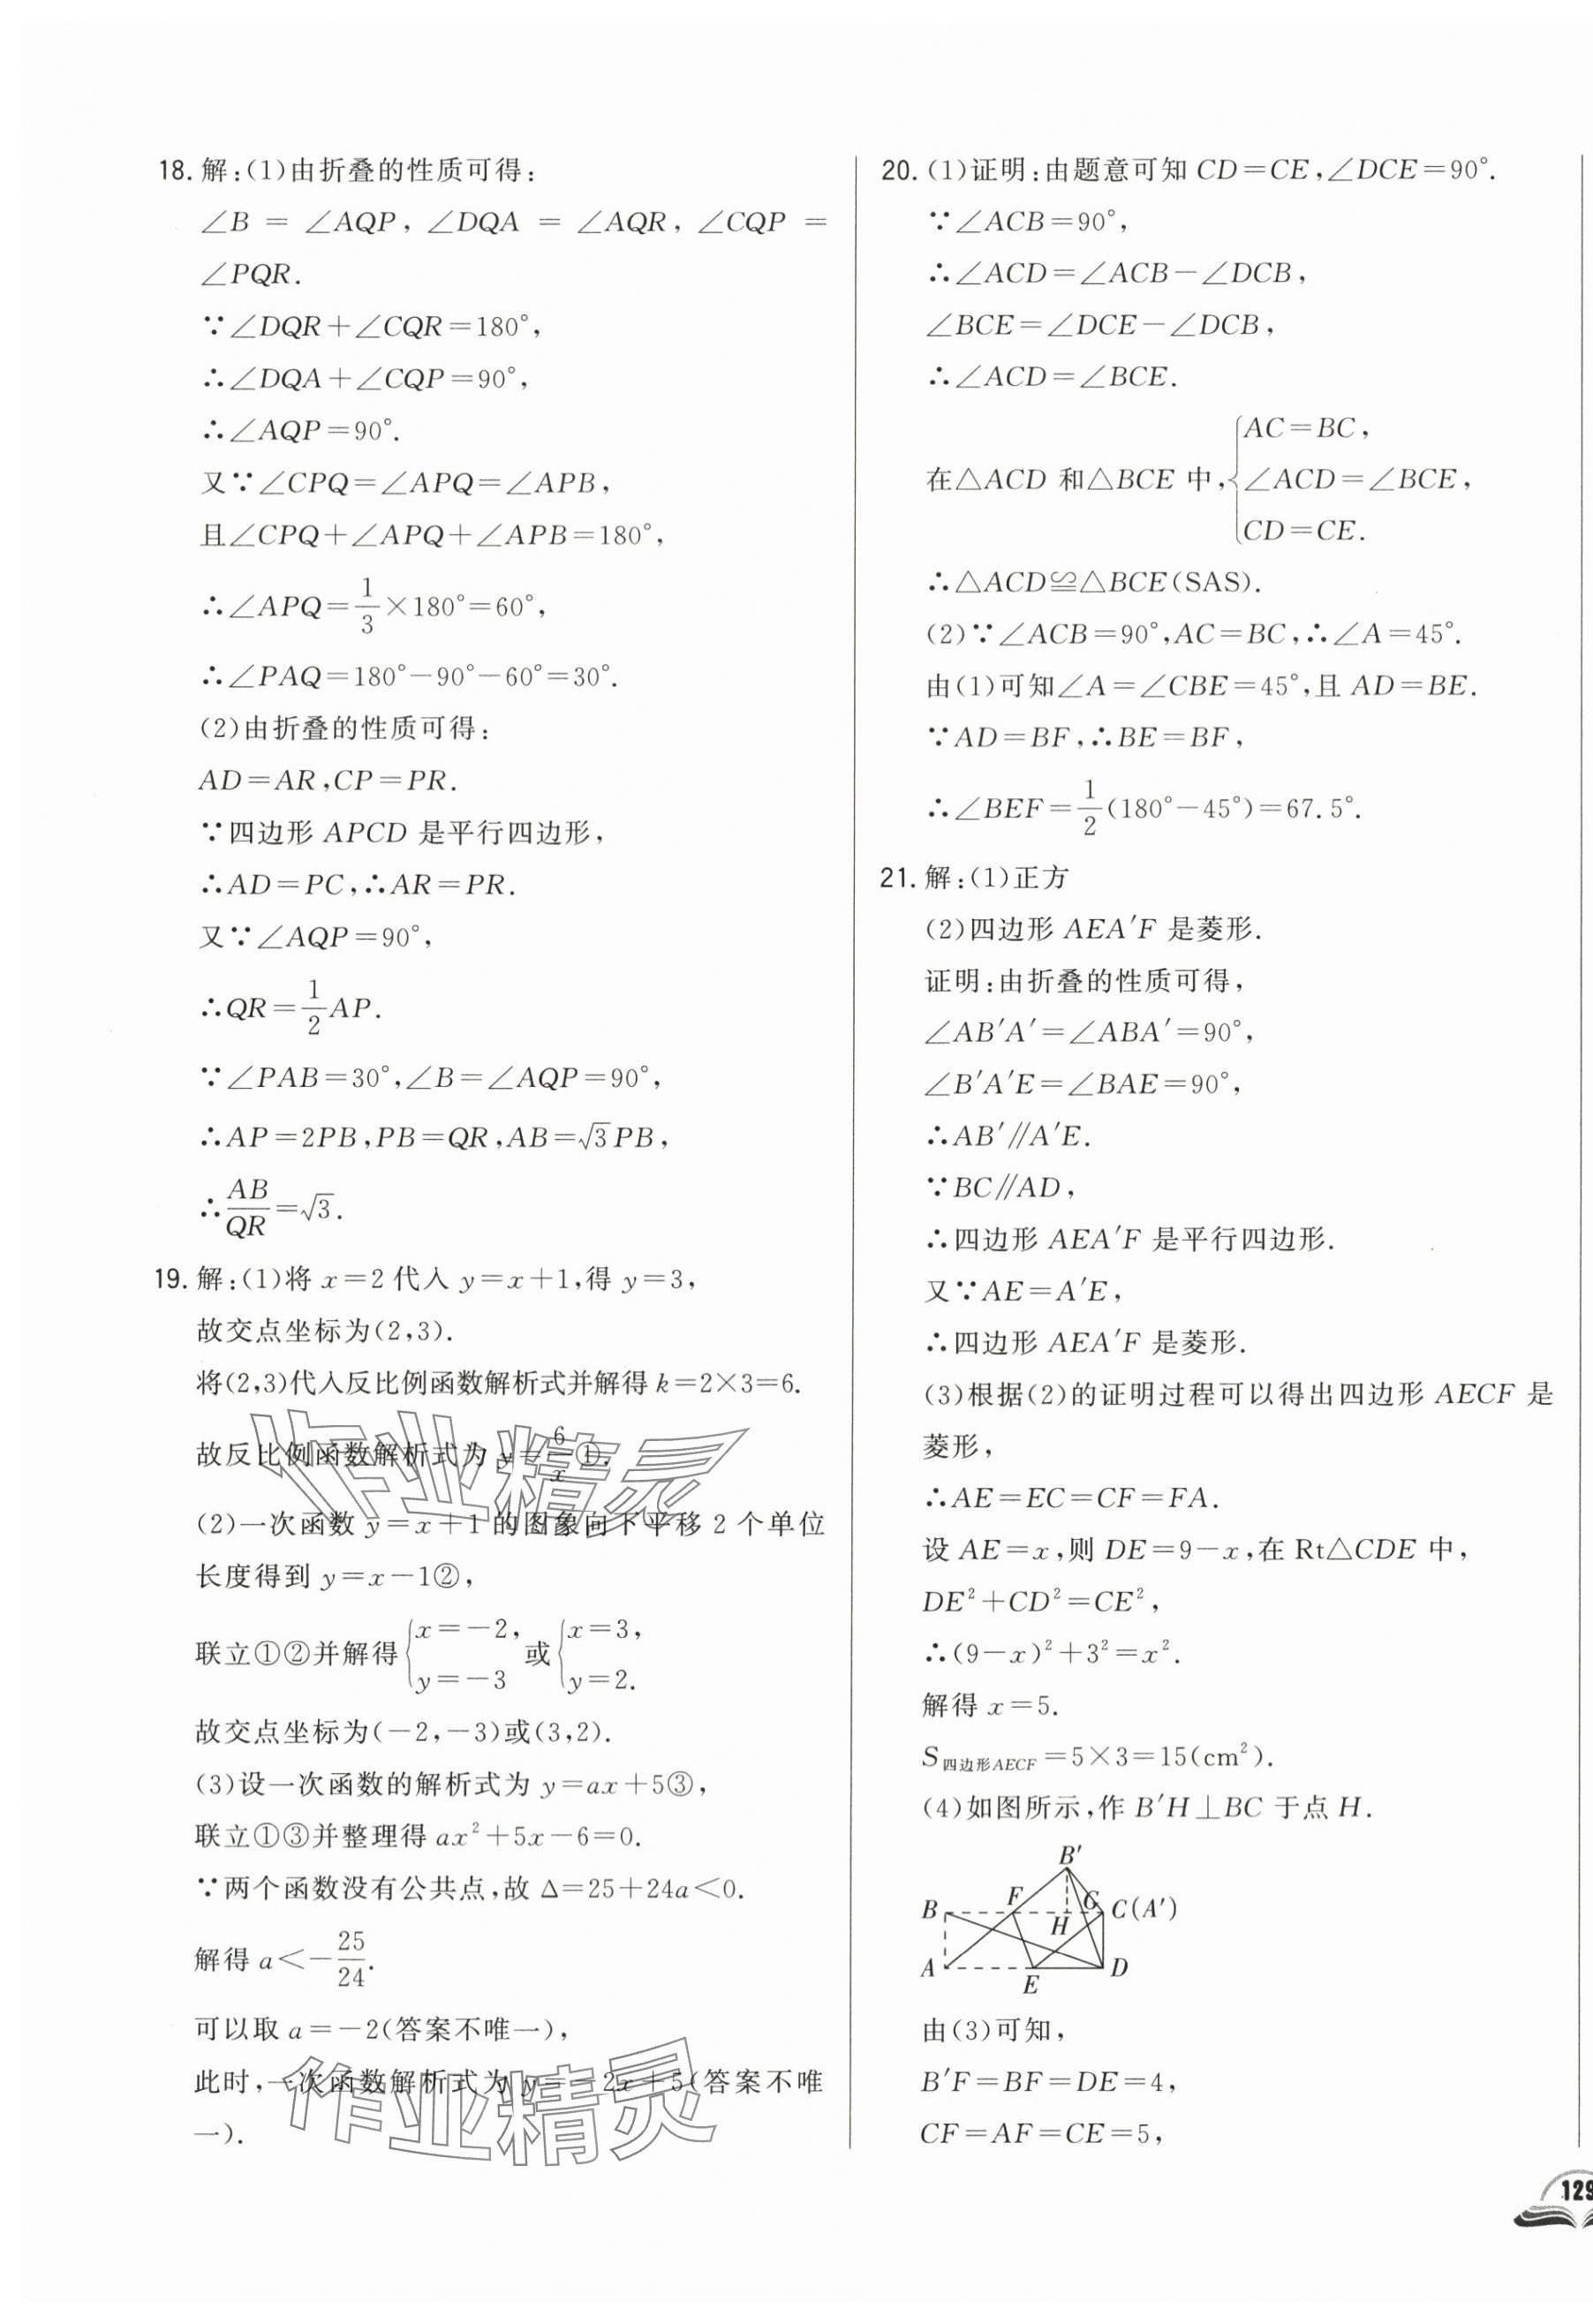 18. 解:(1)由折叠的性质可得:
∠B = ∠AQP, ∠DQA = ∠AQR, ∠CQP =
∠PQR.
∵∠DQR+∠CQR=180°,
∴∠DQA+∠CQP=90°,
∴∠AQP=90°.
又∵∠CPQ=∠APQ=∠APB,
且∠CPQ+∠APQ+∠APB=180°,
∴∠APQ=1/3×180°=60°,
∴∠PAQ=180°-90°-60°=30°.
(2)由折叠的性质可得:
AD=AR,CP=PR.
∵四边形 APCD 是平行四边形,
∴AD=PC,∴AR=PR.
又∵∠AQP=90°,
∴QR=1/2AP.
∵∠PAB=30°,∠B=∠AQP=90°,
∴AP=2PB,PB=QR,AB=√3PB,
∴AB/QR=√3.
19. 解:(1)将 x=2 代入 y=x+1,得 y=3,
故交点坐标为(2,3).
将(2,3)代入反比例函数解析式并解得 k=2×3=6.
故反比例函数解析式为 y=6/x①,
(2)一次函数 y=x+1 的图象向下平移 2 个单位
长度得到 y=x-1②,
联立①②并解得{x=-2, y=-3 或{x=3, y=2.
故交点坐标为(-2,-3)或(3,2).
(3)设一次函数的解析式为 y=ax+5③,
联立①③并整理得 ax²+5x-6=0.
∵两个函数没有公共点,故 Δ=25+24a<0.
解得 a<-25/24.
可以取 a=-2(答案不唯一),
此时,一次函数解析式为 y=-2x+5(答案不唯
一).
作业精灵
作业精灵
20. (1)证明:由题意可知 CD=CE,∠DCE=90°.
∵∠ACB=90°,
∴∠ACD=∠ACB-∠DCB,
∠BCE=∠DCE-∠DCB,
∴∠ACD=∠BCE.
在△ACD 和△BCE 中,{AC=BC, ∠ACD=∠BCE, CD=CE.
∴△ACD≌△BCE(SAS).
(2)∵∠ACB=90°,AC=BC,∴∠A=45°.
由(1)可知∠A=∠CBE=45°,且 AD=BE.
∵AD=BF,∴BE=BF,
∴∠BEF=1/2(180°-45°)=67.5°.
21. 解:(1)正方
(2)四边形 AEA′F 是菱形.
证明:由折叠的性质可得,
∠AB′A′=∠ABA′=90°,
∠B′A′E=∠BAE=90°,
∴AB′∥A′E.
∵BC∥AD,
∴四边形 AEA′F 是平行四边形.
又∵AE=A′E,
∴四边形 AEA′F 是菱形.
(3)根据(2)的证明过程可以得出四边形 AECF 是
菱形,
∴AE=EC=CF=FA.
设 AE=x,则 DE=9-x,在 Rt△CDE 中,
DE²+CD²=CE²,
∴(9-x)²+3²=x².
解得 x=5.
S四边形AECF=5×3=15(cm²).
(4)如图所示,作 B′H⊥BC 于点 H.
B′
B F G C(A′)
H
A E D
由(3)可知,
B′F=BF=DE=4,
CF=AF=CE=5,
129